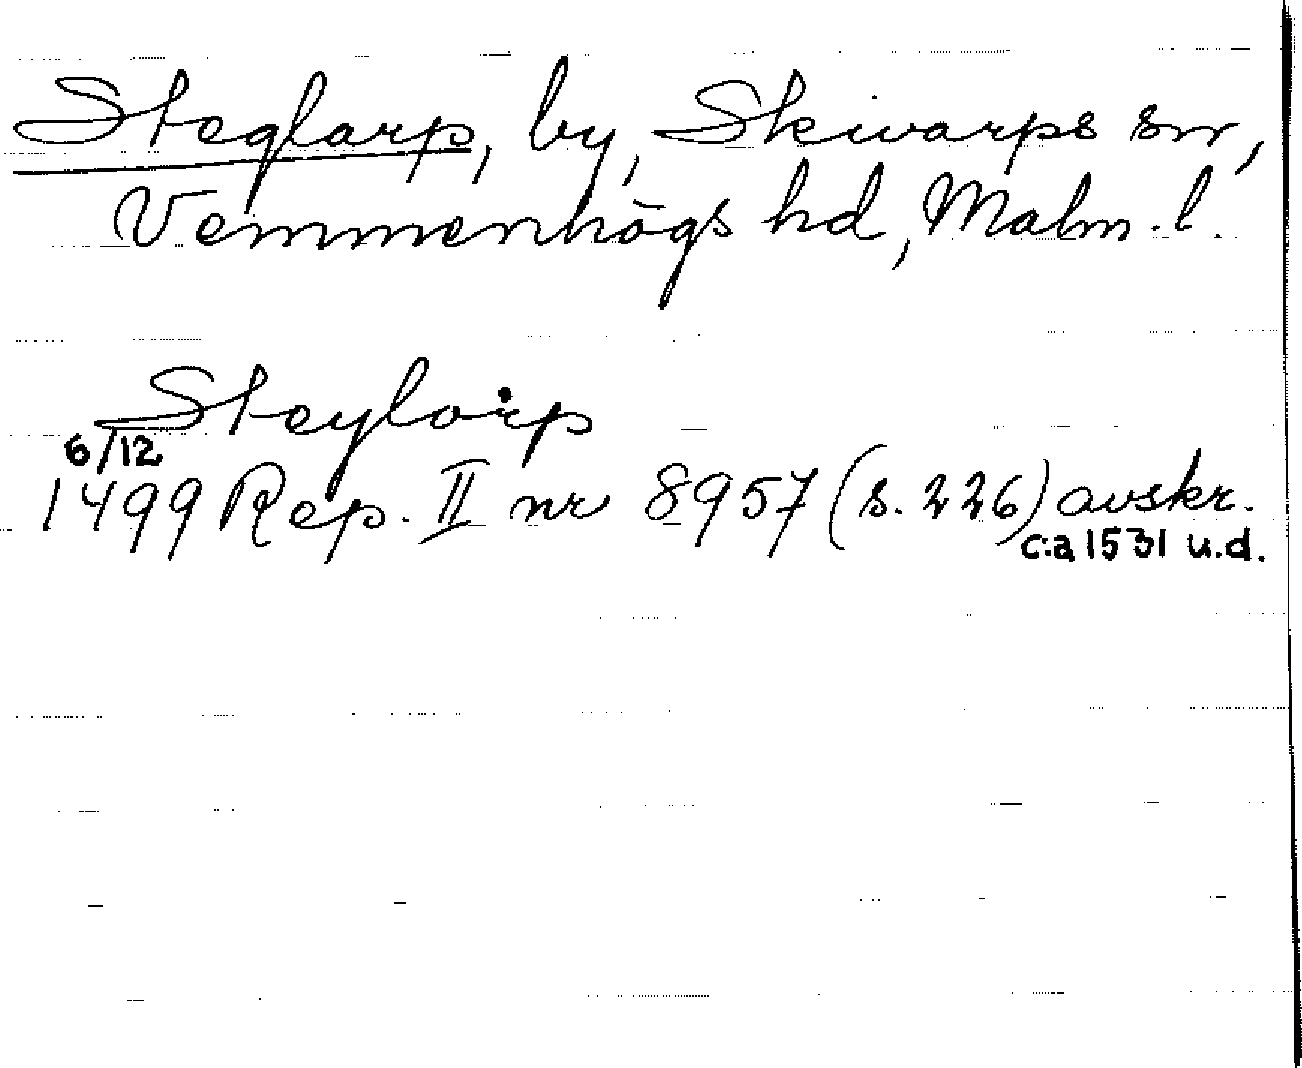 Steglarp, by, Skivarps sn,
Vemmenhögs hd, Malm. l.
Steylorp
6/12
1499 Rep. II nr 8957 (s. 226) avskr.
c:a 1531 u.d.